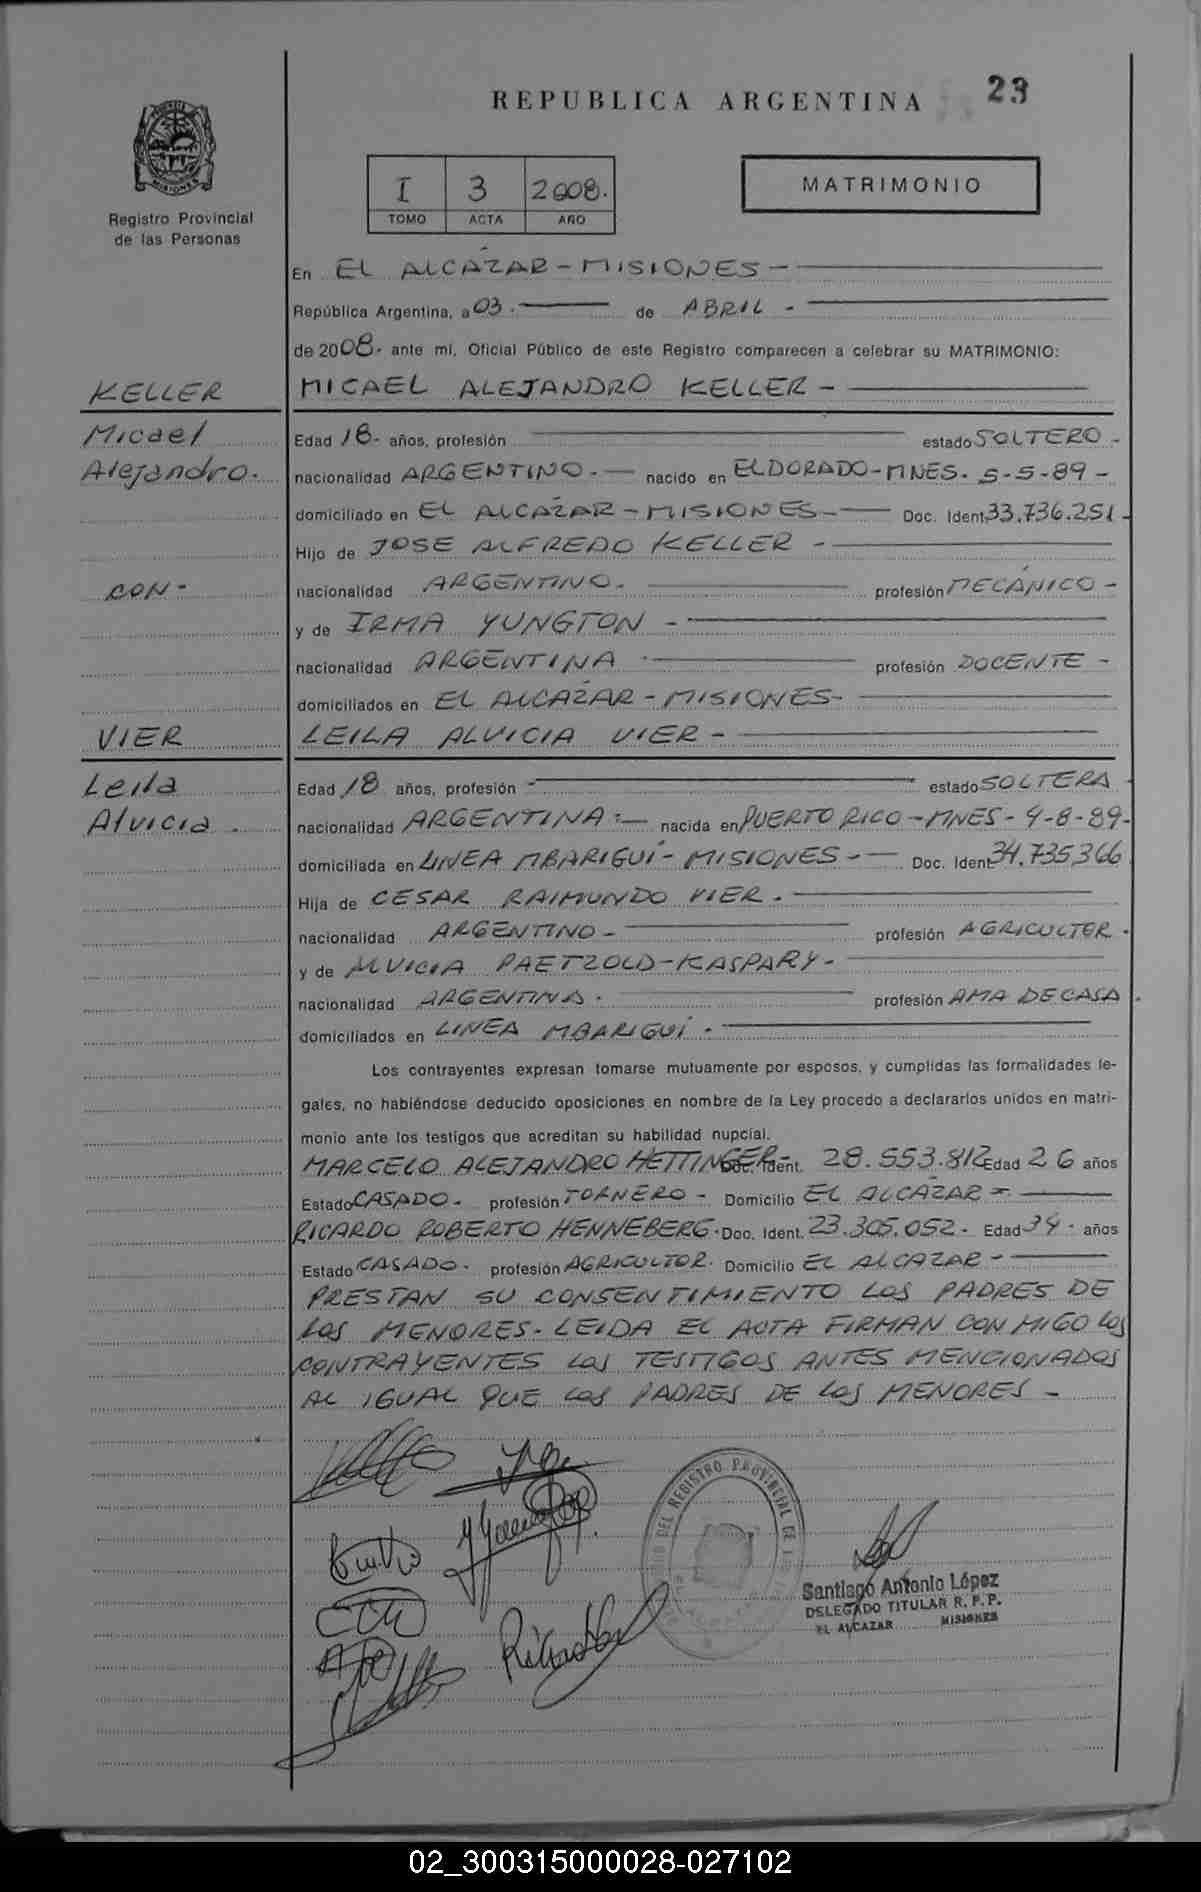 REPUBLICA ARGENTINA 23
Registro Provincial
de las Personas
I 3 2008.
TOMO ACTA AÑO
MATRIMONIO
En EL ALCÁZAR - MISIONES -
República Argentina, a 03. de ABRIL -
de 2008. ante mí, Oficial Público de este Registro comparecen a celebrar su MATRIMONIO:
KELLER MICAEL ALEJANDRO KELLER -
Micael Edad 18- años, profesión estado SOLTERO -
Alejandro. nacionalidad ARGENTINO. - nacido en ELDORADO - MNES. 5-5-89 -
domiciliado en EL ALCÁZAR - MISIONES - Doc. Ident. 33.736.251 -
Hijo de JOSE ALFREDO KELLER -
CON - nacionalidad ARGENTINO. profesión MECÁNICO -
y de IRMA YUNGTON -
nacionalidad ARGENTINA - profesión DOCENTE -
domiciliados en EL ALCÁZAR - MISIONES -
VIER LEILA ALVICIA VIER -
Leila Edad 18 años, profesión - estado SOLTERA -
Alvicia . nacionalidad ARGENTINA - nacida en PUERTO RICO - MNES - 4-8-89 -
domiciliada en LINEA MBARIGUÍ - MISIONES - Doc. Ident. 34.735366
Hija de CESAR RAIMUNDO VIER .
nacionalidad ARGENTINO - profesión AGRICULTOR -
y de ALVICIA PAETZOLD - KASPARY -
nacionalidad ARGENTINA . profesión AMA DE CASA .
domiciliados en LINEA MBARIGUÍ .
Los contrayentes expresan tomarse mutuamente por esposos, y cumplidas las formalidades le-
gales, no habiéndose deducido oposiciones en nombre de la Ley procedo a declararlos unidos en matri-
monio ante los testigos que acreditan su habilidad nupcial.
MARCELO ALEJANDRO HETTINGER - Doc. Ident. 28.553.812 Edad 26 años
Estado CASADO - profesión TORNERO - Domicilio EL ALCÁZAR -
RICARDO ROBERTO HENNEBERG. Doc. Ident. 23.305.052 - Edad 34 - años
Estado CASADO - profesión AGRICULTOR. Domicilio EL ALCAZAR -
PRESTAN SU CONSENTIMIENTO LOS PADRES DE
LOS MENORES - LEIDA EL ACTA FIRMAN CONMIGO LOS
CONTRAYENTES LOS TESTIGOS ANTES MENCIONADOS
AL IGUAL QUE LOS PADRES DE LOS MENORES -
DEL REGISTRO PROVINCIAL DE
Santiago Antonio López
DELEGADO TITULAR R. P. P.
EL ALCAZAR MISIONES
02_300315000028-027102